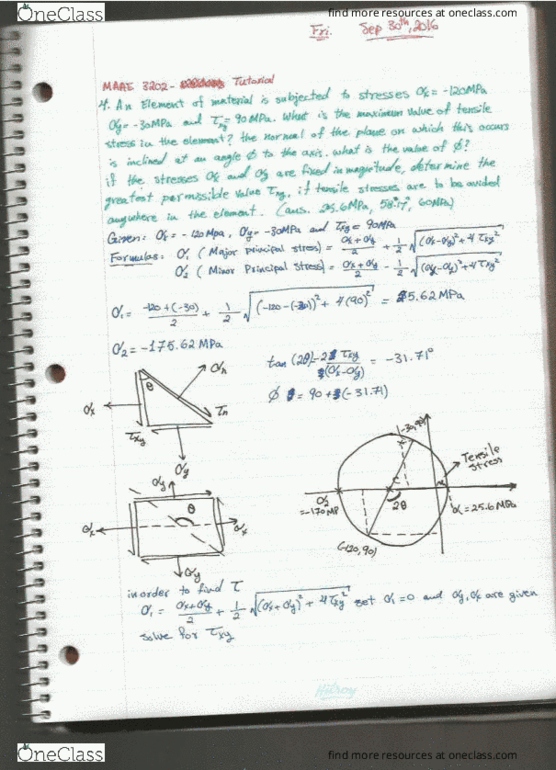 OneClass
find more resources at oneclass.com
Fri. Sep 30th, 2016
MAAE 3202 - Tutorial
4. An Element of material is subjected to stresses σx = -120MPa
σy = -30MPa and τxy = 90MPa. What is the maximum value of tensile
stress in the element? the normal of the plane on which this occurs
is inclined at an angle ϕ to the axis. what is the value of ϕ?
if the stresses σx and σy are fixed in magnitude, determine the
greatest permissible value τxy, if tensile stresses are to be avoided
anywhere in the element. (ans. 25.6MPa, 58°17', 60MPa)
Given: σx = -120Mpa, σy = -30MPa and τxy = 90MPa
Formulas: σ1 (Major principal stress) = (σx+σy)/2 + 1/2 √((σx-σy)²+4τxy²)
σ2 (Minor Principal stress) = (σx+σy)/2 - 1/2 √((σx-σy)²+4τxy²)
σ1 = (-120+(-30))/2 + 1/2 √((-120-(-30))²+4(90)²) = 25.62MPa
σ2 = -175.62MPa
tan (2θ) - 2 τxy/(σx-σy) = -31.71°
ϕ = 90+(-31.71)
σx
θ
σn
τn
τxy
σy
σy
σx
θ
σx
σy
(-30,90)
Tensile
stress
σ2
=-170MP
C
2θ
σ1=25.6MPa
(-120,90)
in order to find τ
σ1 = (σx+σy)/2 + 1/2 √((σx+σy)² + 4τxy²) set σ1=0 and σy, σx are given
solve for τxy
Hilroy
OneClass
find more resources at oneclass.com